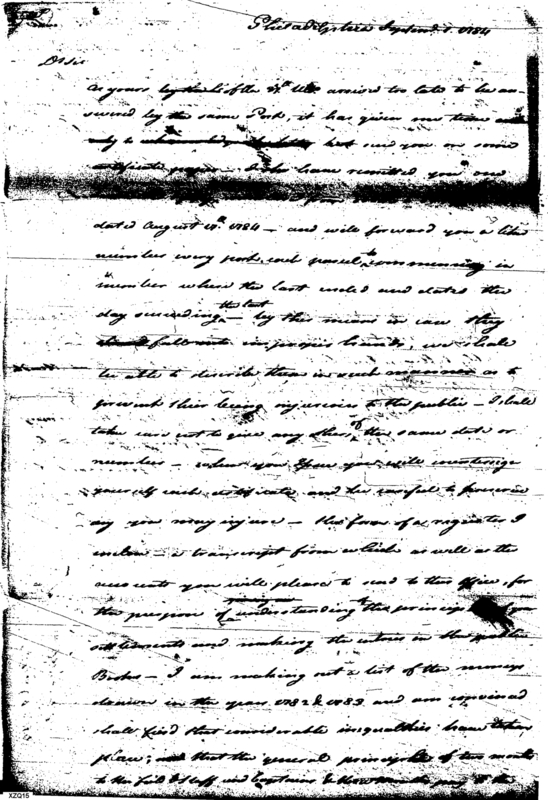 Philadelphia Septemr. 1. 1784
D Sir
As yours by the of the Ulto. arrived too late to be an-
swered by the same Post, it has given me time
only to but send you on some
certificate paper — I have remitted you one
dated August 17th. 1784 — and will forward you a like
number every post, each parcel to commencing in
number where the last ended and dated the
day succeeding the last — by this means in case they
should fall into improper hands, we shall
be able to describe them in such manner as to
prevent their being injurious to the public — I shall
take care not to give any others of the same date or
number — when you you will countersign
yourself each certificate and be careful to preserve
any you may injure — the form of a register I
inclose — a transcript from which as well as the
accounts you will please to send to this Office, for
the purpose of understanding the principles of your
settlements and making the entries in the public
Books — I am making out a list of the moneys
drawn in the years 1782 & 1783 and am convinced
shall find that considerable inequalities have taken
place; and that the general principle of two months
to the field & staff and Captains & three months pay to the
XZQ15